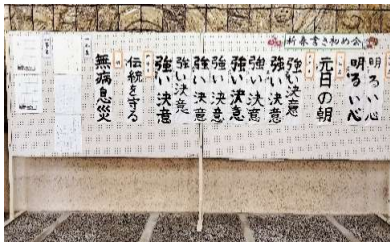 新春書き初め会
明るい心
明るい心
元日の朝
強い決意
強い決意
強い決意
強い決意
強い決意
強い決意
強い決意
強い決意
伝統を守る
無病息災